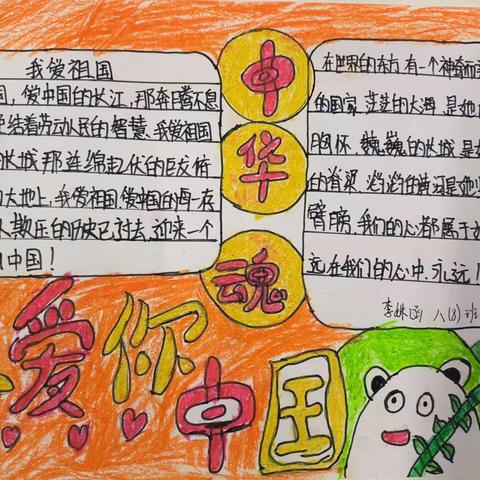 我爱祖国
国,爱中国的长江,那奔腾不息
结着劳动人民的智慧.我爱祖国
的长城 那连绵起伏的巨龙 俯
大地上,我爱祖国,爱中国的每一在
人欺压的历史已过去,迎来一个
中国!
中
华
魂
在世界的东方,有一个神奇而
的国家.茫茫的大海,是她
胸怀.巍巍的长城,是
的脊梁.滔滔的黄河是她
臂膀.我们的心都属于
远在我们的心中.永远!
李姝函 八(8)班
爱你
中国